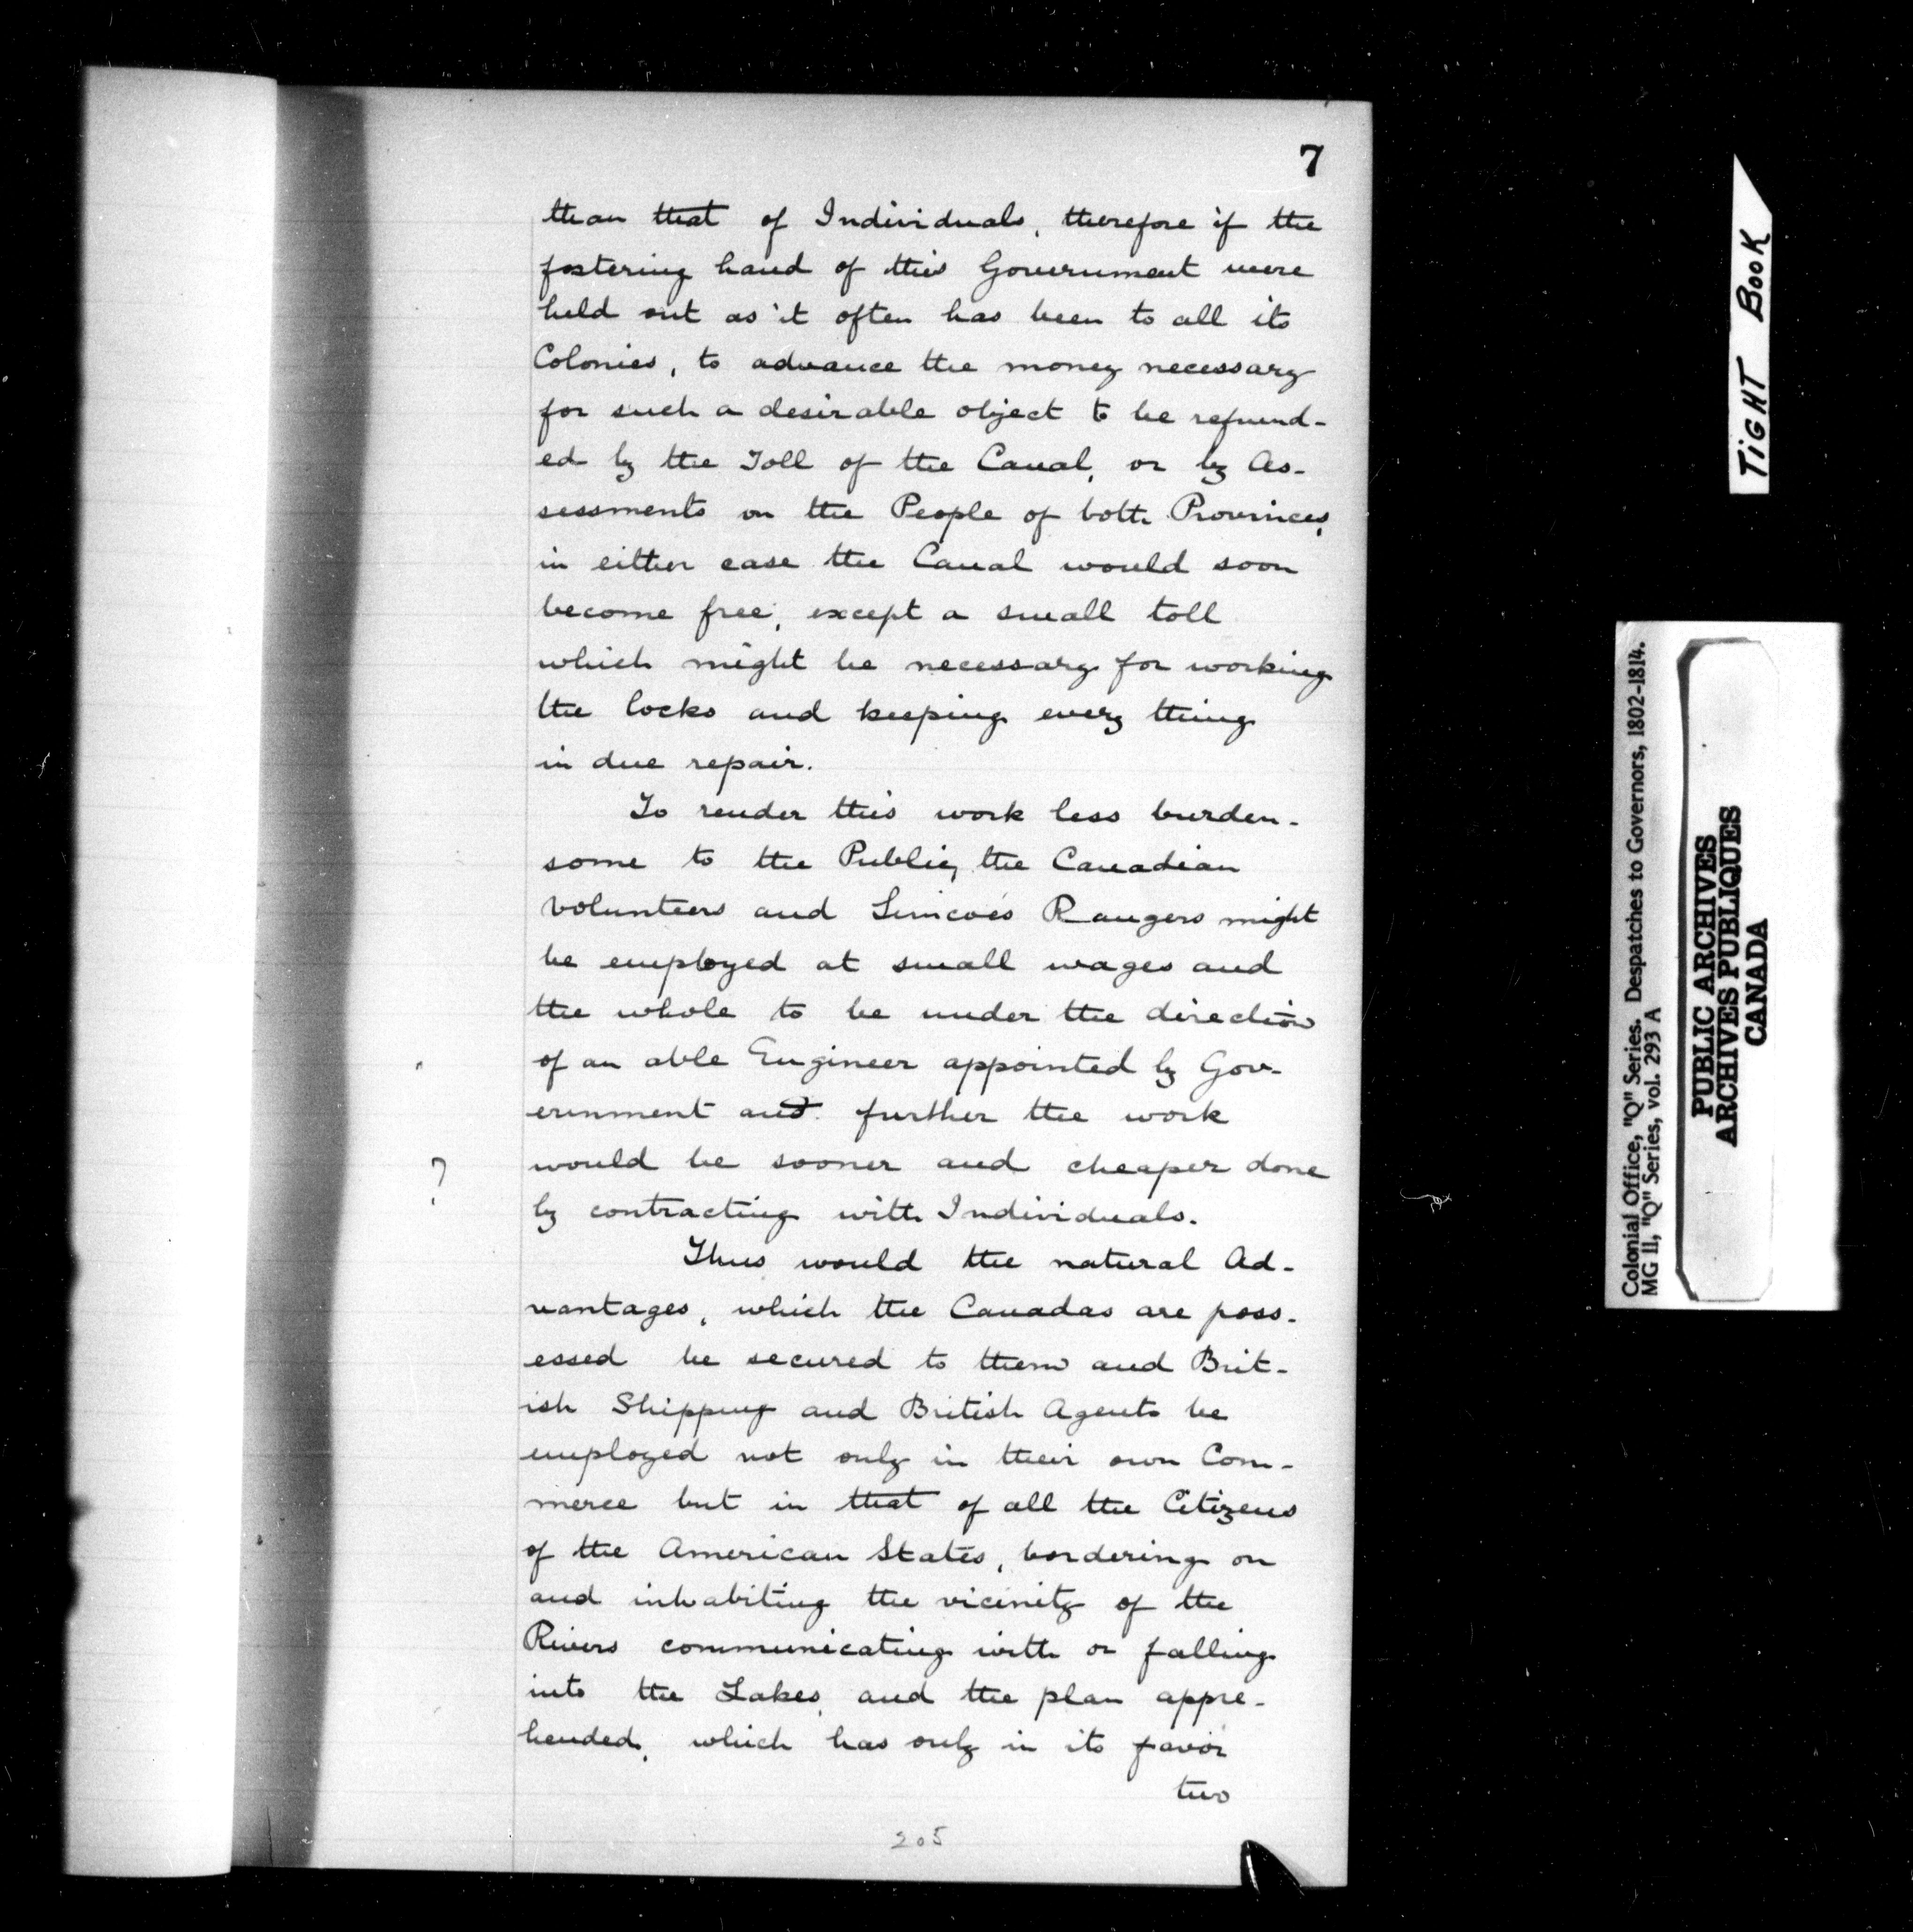 7
than that of Individuals, therefore if the
fostering hand of this Government were
held out as it often has been to all its
Colonies, to advance the money necessary
for such a desirable object to be refund-
ed by the Toll of the Canal, or by As-
sessments on the People of both Provinces,
in either case the Canal would soon
become free, except a small toll
which might be necessary for working
the locks and keeping every thing
in due repair.
To render this work less burden-
some to the Public, the Canadian
Volunteers and Simcoe's Rangers might
be employed at small wages and
the whole to be under the direction
of an able Engineer appointed by Gov-
ernment and further the work
? would be sooner and cheaper done
by contracting with Individuals.
Thus would the natural Ad-
vantages, which the Canadas are poss-
essed be secured to them and Brit-
ish Shipping and British Agents be
employed not only in their own Com-
merce but in that of all the Citizens
of the American States, bordering on
and inhabiting the vicinity of the
Rivers communicating with or falling
into the Lakes, and the plan appre-
hended, which has only in its favor
two
205
TIGHT BOOK
Colonial Office, "Q" Series. Despatches to Governors, 1802-1814.
MG 11, "Q" Series, vol. 293 A
PUBLIC ARCHIVES
ARCHIVES PUBLIQUES
CANADA